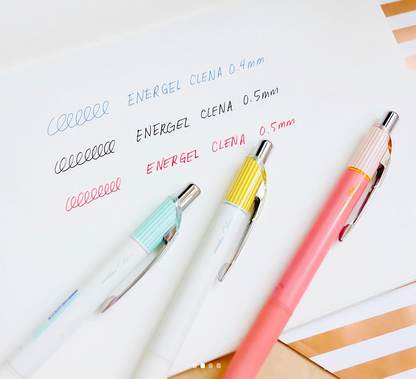 ENERGEL CLENA 0.4mm
ENERGEL CLENA 0.5mm
ENERGEL CLENA 0.5mm